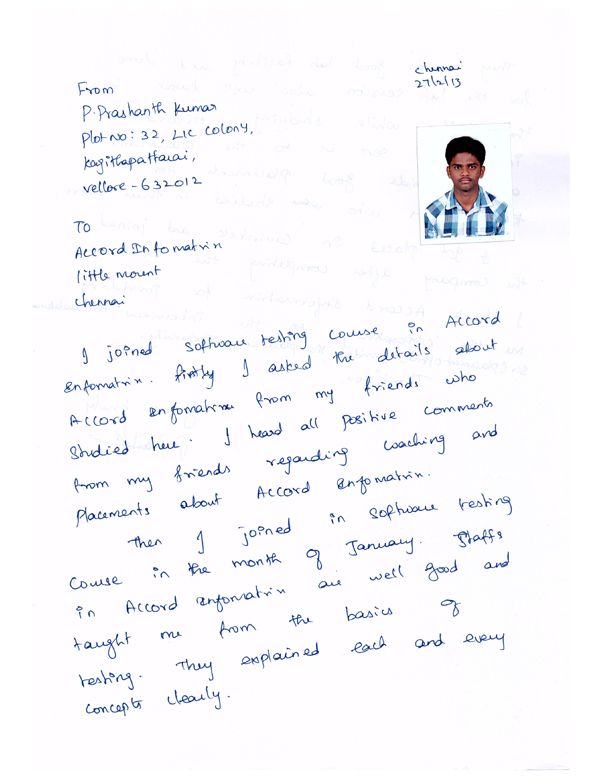 Chennai
27/2/13
From
P. Prashanth Kumar
Plot No: 32, LIC Colony,
Kagithapattarai,
Vellore - 632012
To
Accord Infomatrix
little mount
Chennai
I joined Software testing Course in Accord
Infomatrix. firstly I asked the details about
Accord Infomatrix from my friends who
Studied here. I heard all positive comments
from my friends regarding coaching and
Placements about Accord Infomatrix.
Then I joined in Software testing
Course in the month of January. Staffs
in Accord Infomatrix are well good and
taught me from the basics of
testing. They explained each and every
concepts clearly.